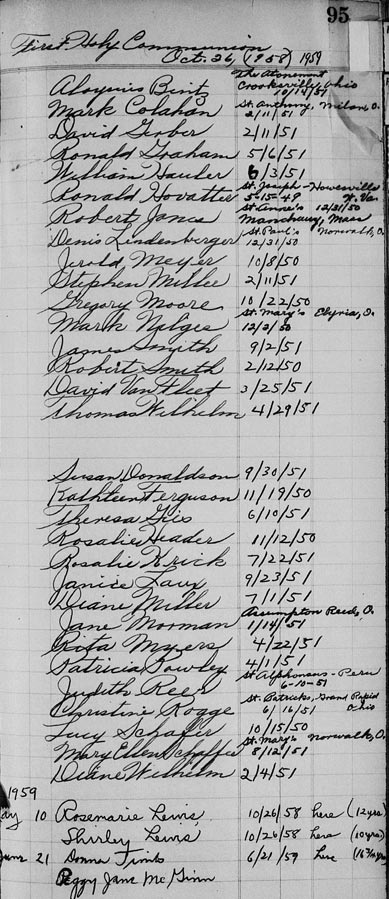 95
First Holy Communion
Oct. 26, (1958) 1959
The Atonement
Aloysius Bintz Crooksville, Ohio
10/14/51
Mark Colahan St. Anthony, Milan, O.
2/11/51
David Gerber 2/11/51
Ronald Graham 5/6/51
William Hauler 6/3/51
Ronald Hovatter St. Joseph - Howesville
5-15-49 W. Va.
Robert Janes St. Anne's 12/31/50
Manchaug, Mass
Denis Lindenberger St. Paul's Norwalk, O.
12/31/50
Jerold Meyer 10/8/50
Stephen Miller 2/11/51
Gregory Moore 10/22/50
Mark Nilges St. Mary's Elyria, O.
12/2/50
James Smyth 9/2/51
Robert Smith 2/12/50
David Van Fleet 3/25/51
Thomas Wilhelm 4/29/51
Susan Donaldson 9/30/51
Kathleen Ferguson 11/19/50
Theresa 6/10/51
Rosalie Header 11/12/50
Rosalie Krick 7/22/51
Janice Laux 9/23/51
Diane Miller 7/1/51
Jane Morman Assumption Reeds, O.
1/14/51
Rita Myers 4/22/51
Patricia Rowley 4/1/51
Judith Reer St. Alphonsus - Peru
6-10-51
Christine Rogge St. Patricks, Grand Rapids
6/16/51 Ohio
Lucy Schaffer 10/15/50
Mary Ellen Schaffer St. Mary's Norwalk, O.
8/12/51
Diane Wilhelm 2/4/51
1959
May 10 Rosemarie Lewis 10/26/58 here (12yrs)
Shirley Lewis 10/26/58 here (10yrs)
June 21 Donna Tints 6/21/59 here
Peggy Jane McGinn